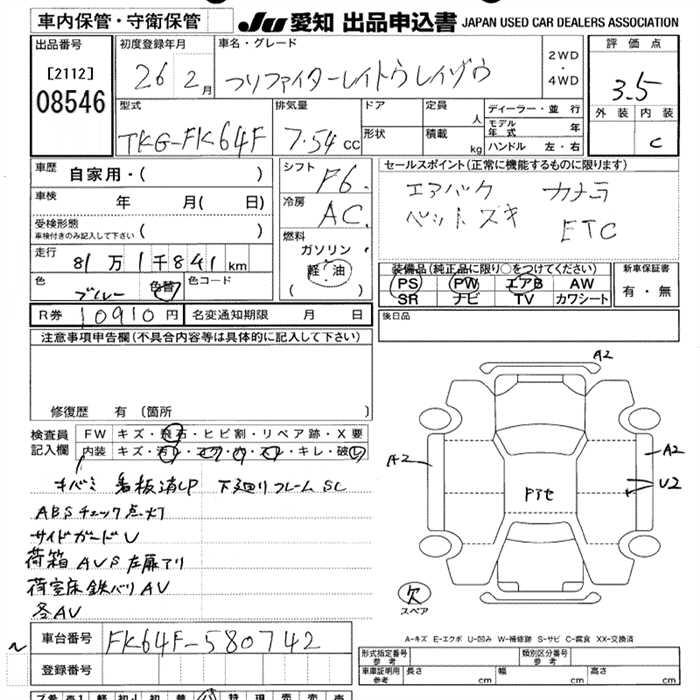 車内保管・守衛保管
JU 愛知 出品申込書 JAPAN USED CAR DEALERS ASSOCIATION
出品番号
[2112]
08546
初度登録年月
26 2月
車名・グレード
2WD・4WD
評価点
3.5
外装 内装
C
型式
TKG-FK64F
排気量
7.54 cc
ドア
形状
定員
人
積載
kg
ディーラー・並行
モデル年式
年
ハンドル 左・右
車歴
自家用・( )
車検
年 月( 日)
受検形態
車検付きのみ記入して下さい
( )
走行
81万1千841km
色
ブルー
色替
色コード
シフト
F6.
冷房
AC.
燃料
ガソリン・
軽・油
( )
セールスポイント(正常に機能するものに限ります)
エアバック カメラ
ベットズキ ETC
装備品(純正品に限り○をつけてください)
PS PW エアB AW
SR ナビ TV カワシート
新車保証書
有・無
R券 10910円
名変通知期限 月 日
後日品
注意事項申告欄(不具合内容等は具体的に記入して下さい)
修復歴 有 〔箇所
検査員記入欄
FW キズ・飛石・ヒビ割・リペア跡・X要
内装
キバミ 看板消しP 下廻りフレームSC
ABSチェック点灯
サイドガードU
荷箱AUS左扉アリ
荷室床鉄バリAU
各AU
A2
A2
A2
U2
欠
スペア
A-キズ E-エクボ U-凹み W-補修跡 S-サビ C-腐食 XX-交換済
車台番号
FK64F-580742
登録番号
形式指定番号
参考
類別区分番号
参考
車庫証明用
参考
長さ cm
幅 cm
高さ cm